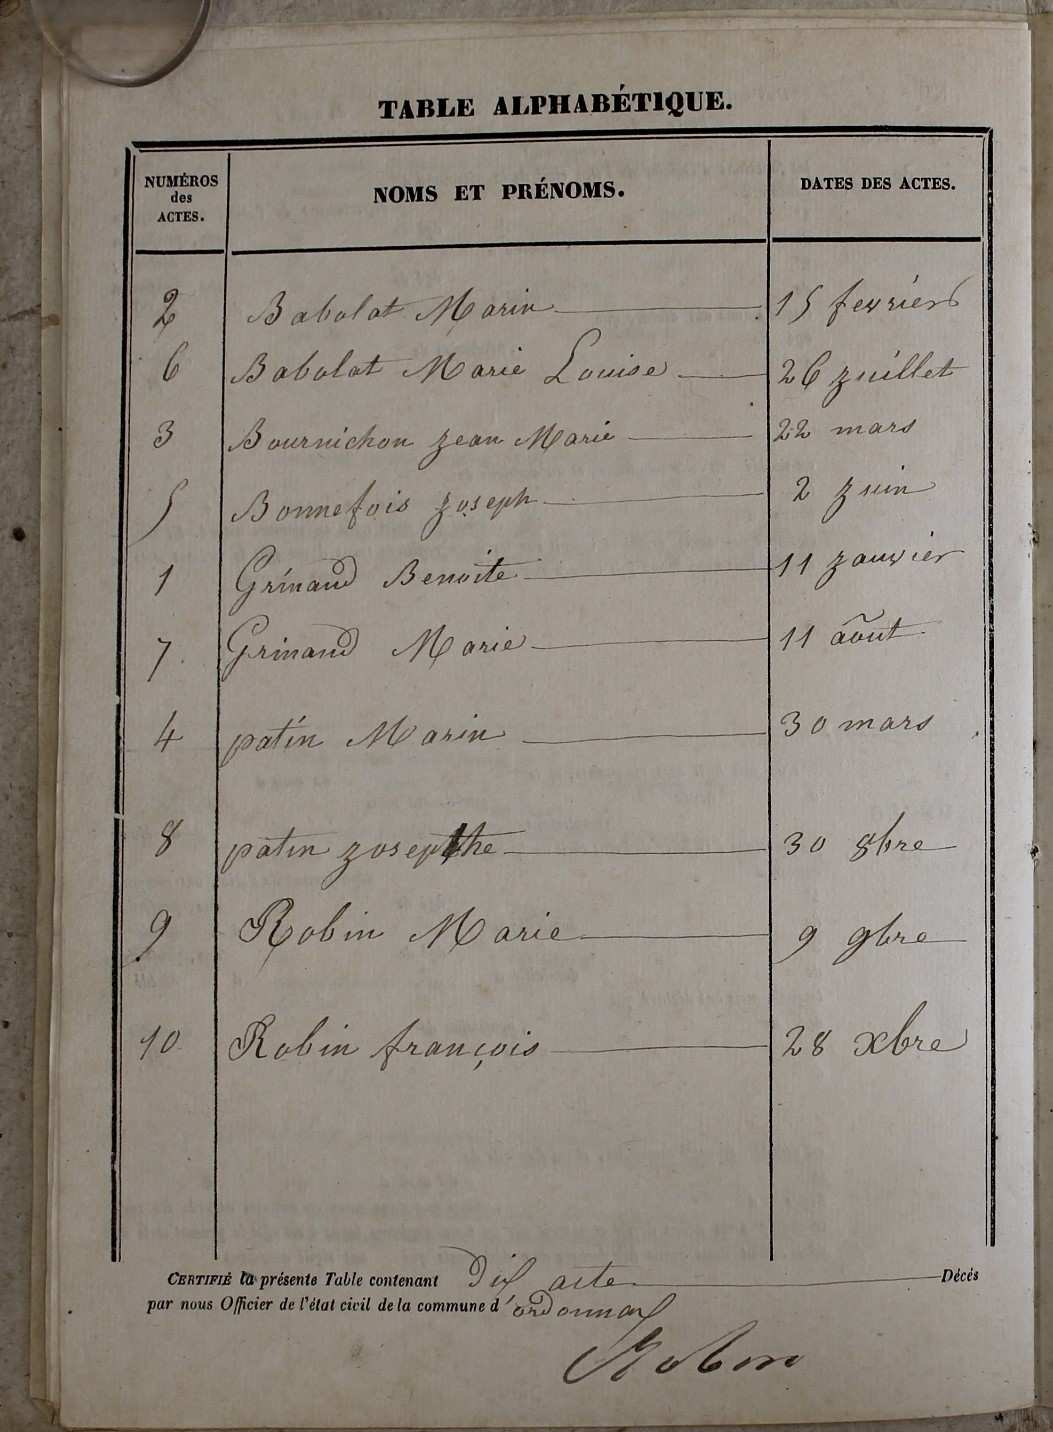 TABLE ALPHABÉTIQUE.
NUMÉROS des ACTES. NOMS ET PRÉNOMS. DATES DES ACTES.
2 Babolat Marin 15 fevrier
6 Babolat Marie Louise 26 juillet
3 Bournichon jean Marie 22 mars
5 Bonnefois joseph 2 juin
1 Grinand Benoite 11 janvier
7 Grinand Marie 11 août
4 patin Marin 30 mars
8 patin josepthe 30 8bre
9 Robin Marie 9 9bre
10 Robin françois 28 xbre
CERTIFIÉ la présente Table contenant Dix acte Décés
par nous Officier de l'état civil de la commune d'ordonnax
Robin